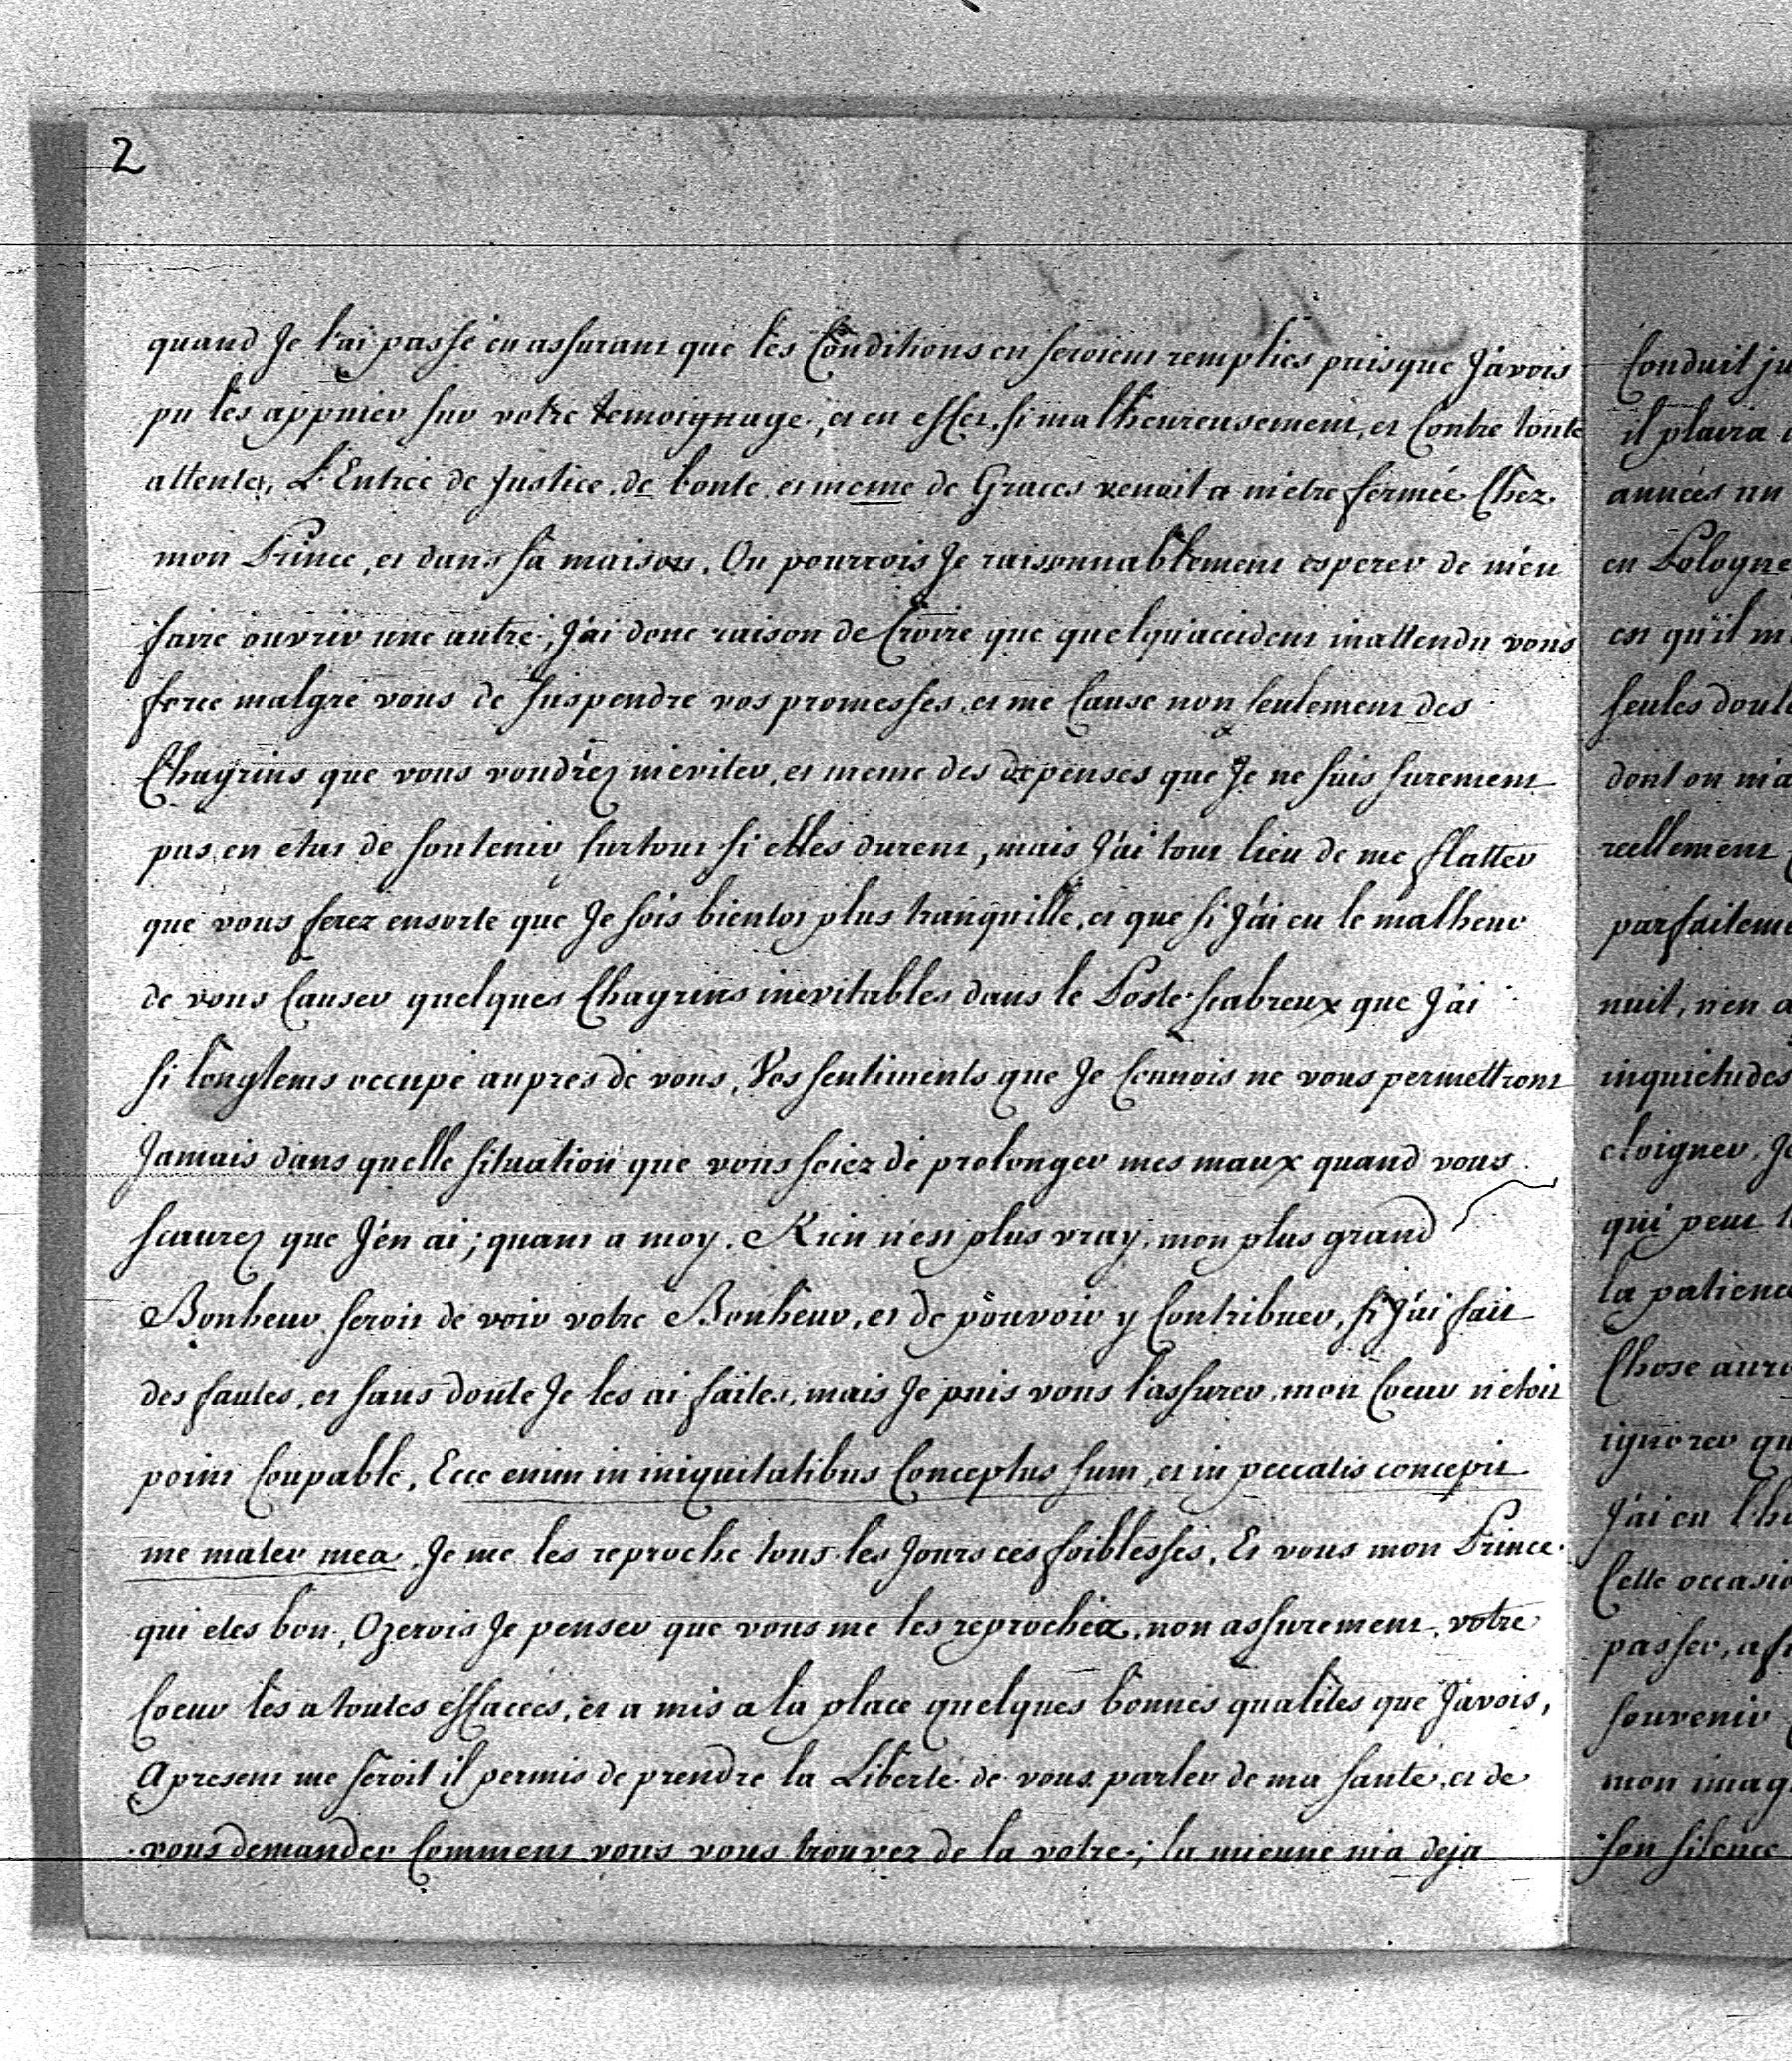 2
quand Je l'ai passé en assurant que les Conditions en seroient remplies puisque J'avois
pu les appuier sur votre temoignage, et en effet, si malheureusement, et Contre toute
attente, L'Entrée de Justice, de bonté, et meme de Graces venoit a m'etre fermée Chez
mon Prince, et dans sa maison, Ou pourrois Je raisonnablement esperer de m'en
faire ouvrir une autre; J'ai donc raison de Croire que quelqu'accident inattendu vous
force malgré vous de suspendre vos promesses, et me Cause non seulement des
Chagrins que vous voudréz m'eviter, et meme des depenses que Je ne suis surement
pas en etat de soutenir, surtout si elles durent, mais J'ai tout lieu de me flatter
que vous ferez ensorte que Je sois bientot plus tranquille, et que si J'ai eu le malheur
de vous Causer quelques Chagrins inevitables dans le Poste scabreux que J'ai
si longtems occupé aupres de vous, Vos sentiments que Je Connois ne vous permettront
Jamais dans quelle situation que vous soiez de prolonger mes maux quand vous
scaurez que J'en ai; quant a moy. Rien n'est plus vray, mon plus grand
Bonheur seroit de voir votre Bonheur, et de pouvoir y Contribuer, si J'ai fait
des fautes, et sans doute Je les ai faites, mais Je puis vous l'assurer, mon Coeur n'etoit
point Coupable, Ecce enim in iniquitatibus Conceptus sum, et in peccatis concepit
me mater mea. Je me les reproche tous les Jours ces foiblesses, Et vous mon Prince
qui etes bon, Ozerois Je penser que vous me les reprochéz, non assurement, votre
Coeur les a toutes effacées, et a mis a la place quelques bonnes qualités que J'avois,
Apresent me seroit il permis de prendre la Liberté de vous parler de ma santé, et de
vous demander Comment vous vous trouvez de la votre; la mienne m'a deja
Conduit
il plaira
années un
en Pologne
est qu'il
seules
dont on m'a
reellement
nuit, n'en
inquietudes
eloigner,
qui peut
la
Chose
ignorer
J'ai eu
Cette
passer,
souvenir
mon
son silence